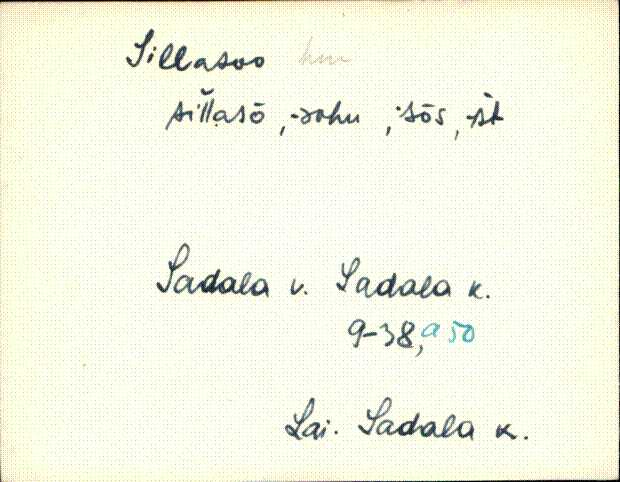 Sillasoo hm
sil̆lasō, -sohu, -sōs, -st
Sadala v. Sadala k.
9-38, a 50
Lai. Sadala k.